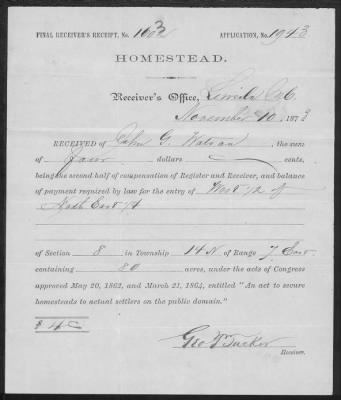 FINAL RECEIVER'S RECEIPT, No. 1603
APPLICATION, No. 1943
HOMESTEAD.
Receiver's Office, Lincoln
November 10 1873
RECEIVED of John G. Watson, the sum
of Four dollars cents,
being the second half of compensation of Register and Receiver, and balance
of payment required by law for the entry of West 1/2 of
North East 1/4
of Section 8 in Township 14 N of Range 7 East
containing 80 acres, under the acts of Congress
approved May 20, 1862, and March 21, 1864, entitled "An act to secure
homesteads to actual settlers on the public domain."
$4
Geo P Tucker
Receiver.